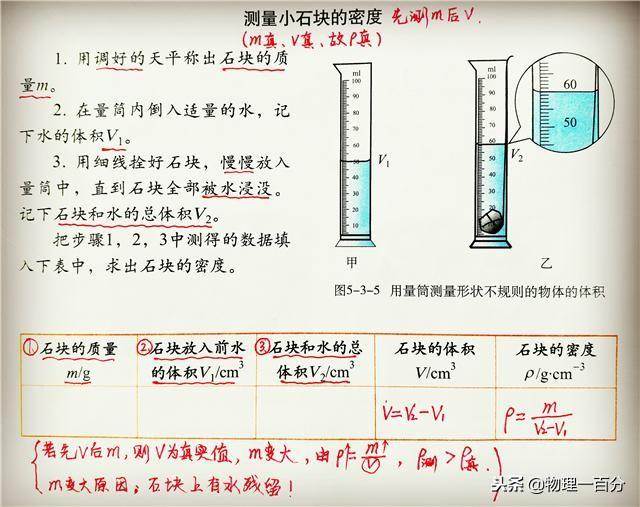 测量小石块的密度 先测m后V.
(m真、V真、故ρ真)
1. 用调好的天平称出石块的质
量m。
2. 在量筒内倒入适量的水，记
下水的体积V₁。
3. 用细线拴好石块，慢慢放入
量筒中，直到石块全部被水浸没。
记下石块和水的总体积V₂。
把步骤1，2，3中测得的数据填
入下表中，求出石块的密度。
ml
100
90
80
70
60
50
40
30
20
10
V₁
甲
ml
100
90
80
70
60
50
40
30
20
V₂
乙
60
50
图5-3-5 用量筒测量形状不规则的物体的体积
①石块的质量
m/g
②石块放入前水
的体积V₁/cm³
③石块和水的总
体积V₂/cm³
石块的体积
V/cm³
石块的密度
ρ/g·cm⁻³
V=V₂-V₁
ρ=m/(V₂-V₁)
若先V后m，则V为真实值，m变大，由ρ↑=m↑/V，ρ测>ρ真.
m变大原因：石块上有水残留！
头条@物理一百分